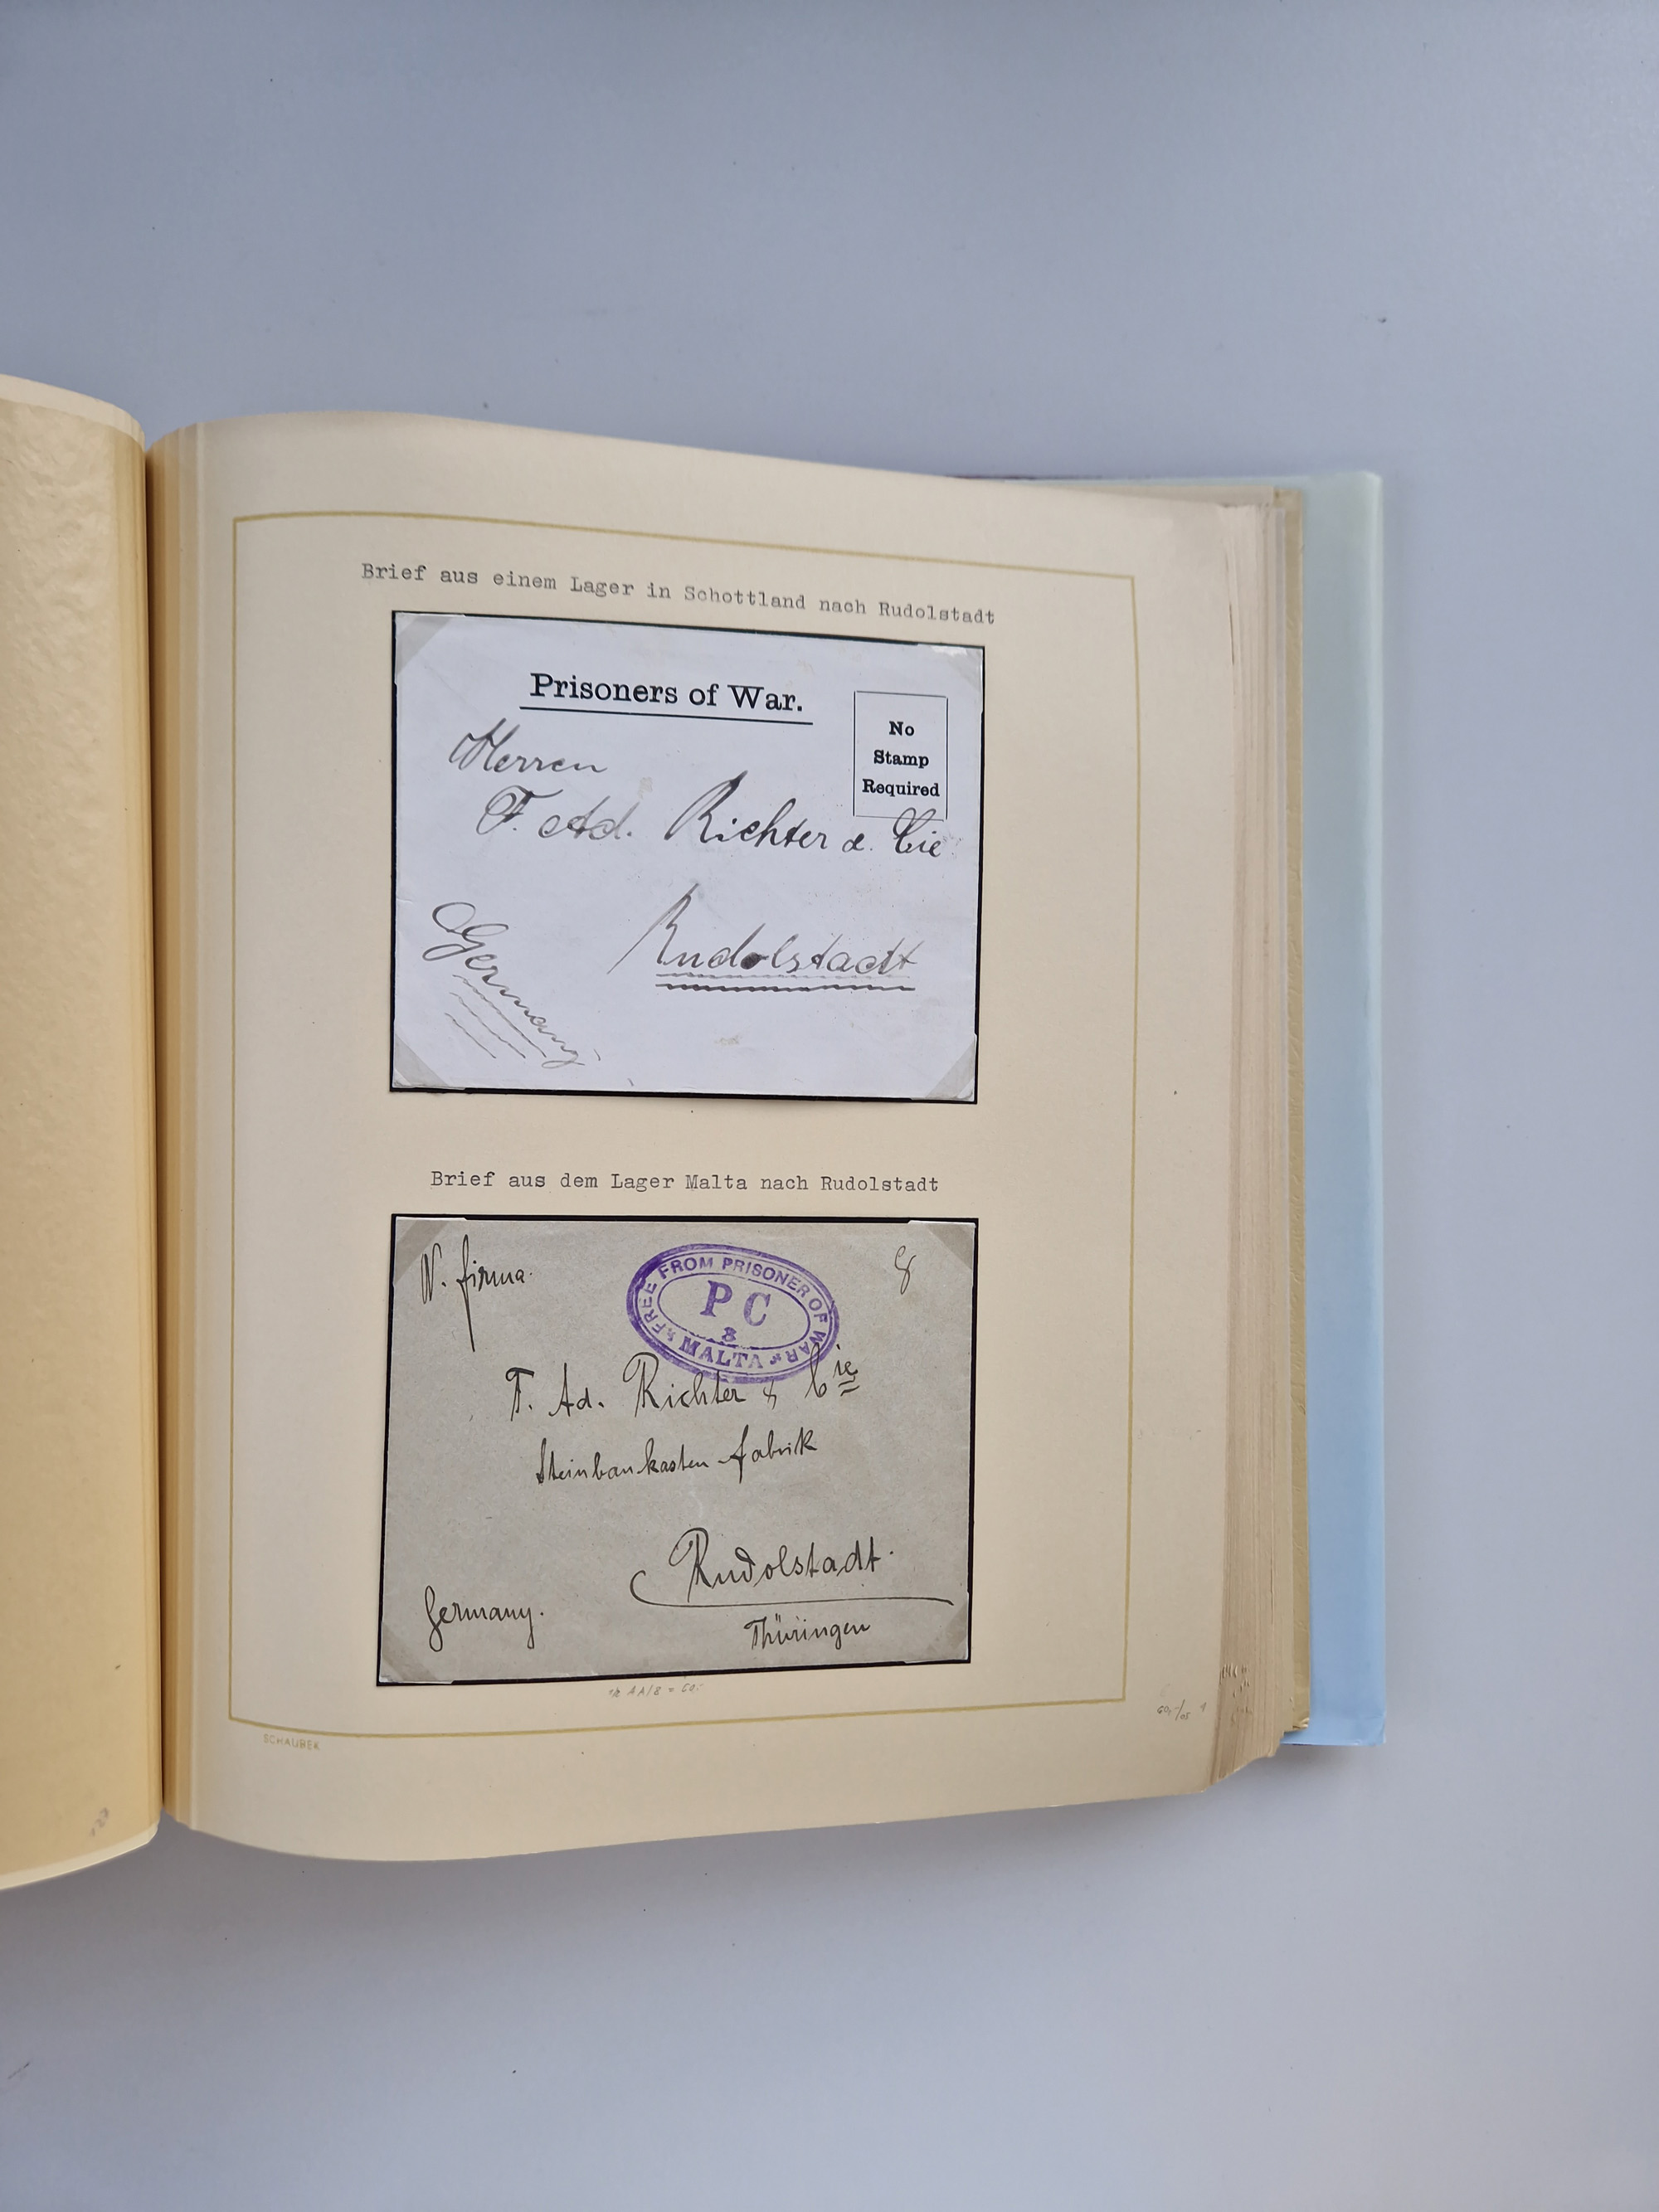 Brief aus einem Lager in Schottland nach Rudolstadt
Prisoners of War.
No
Stamp
Required
Herren
F. Ad. Richter & Cie
Rudolstadt
Germany
Brief aus dem Lager Malta nach Rudolstadt
N. firma.
8
FREE FROM PRISONER OF WAR
P C
3
MALTA
F. Ad. Richter & Cie
Steinbaukasten-fabrik
Rudolstadt.
Thüringen
Germany.
SCHAUBEK